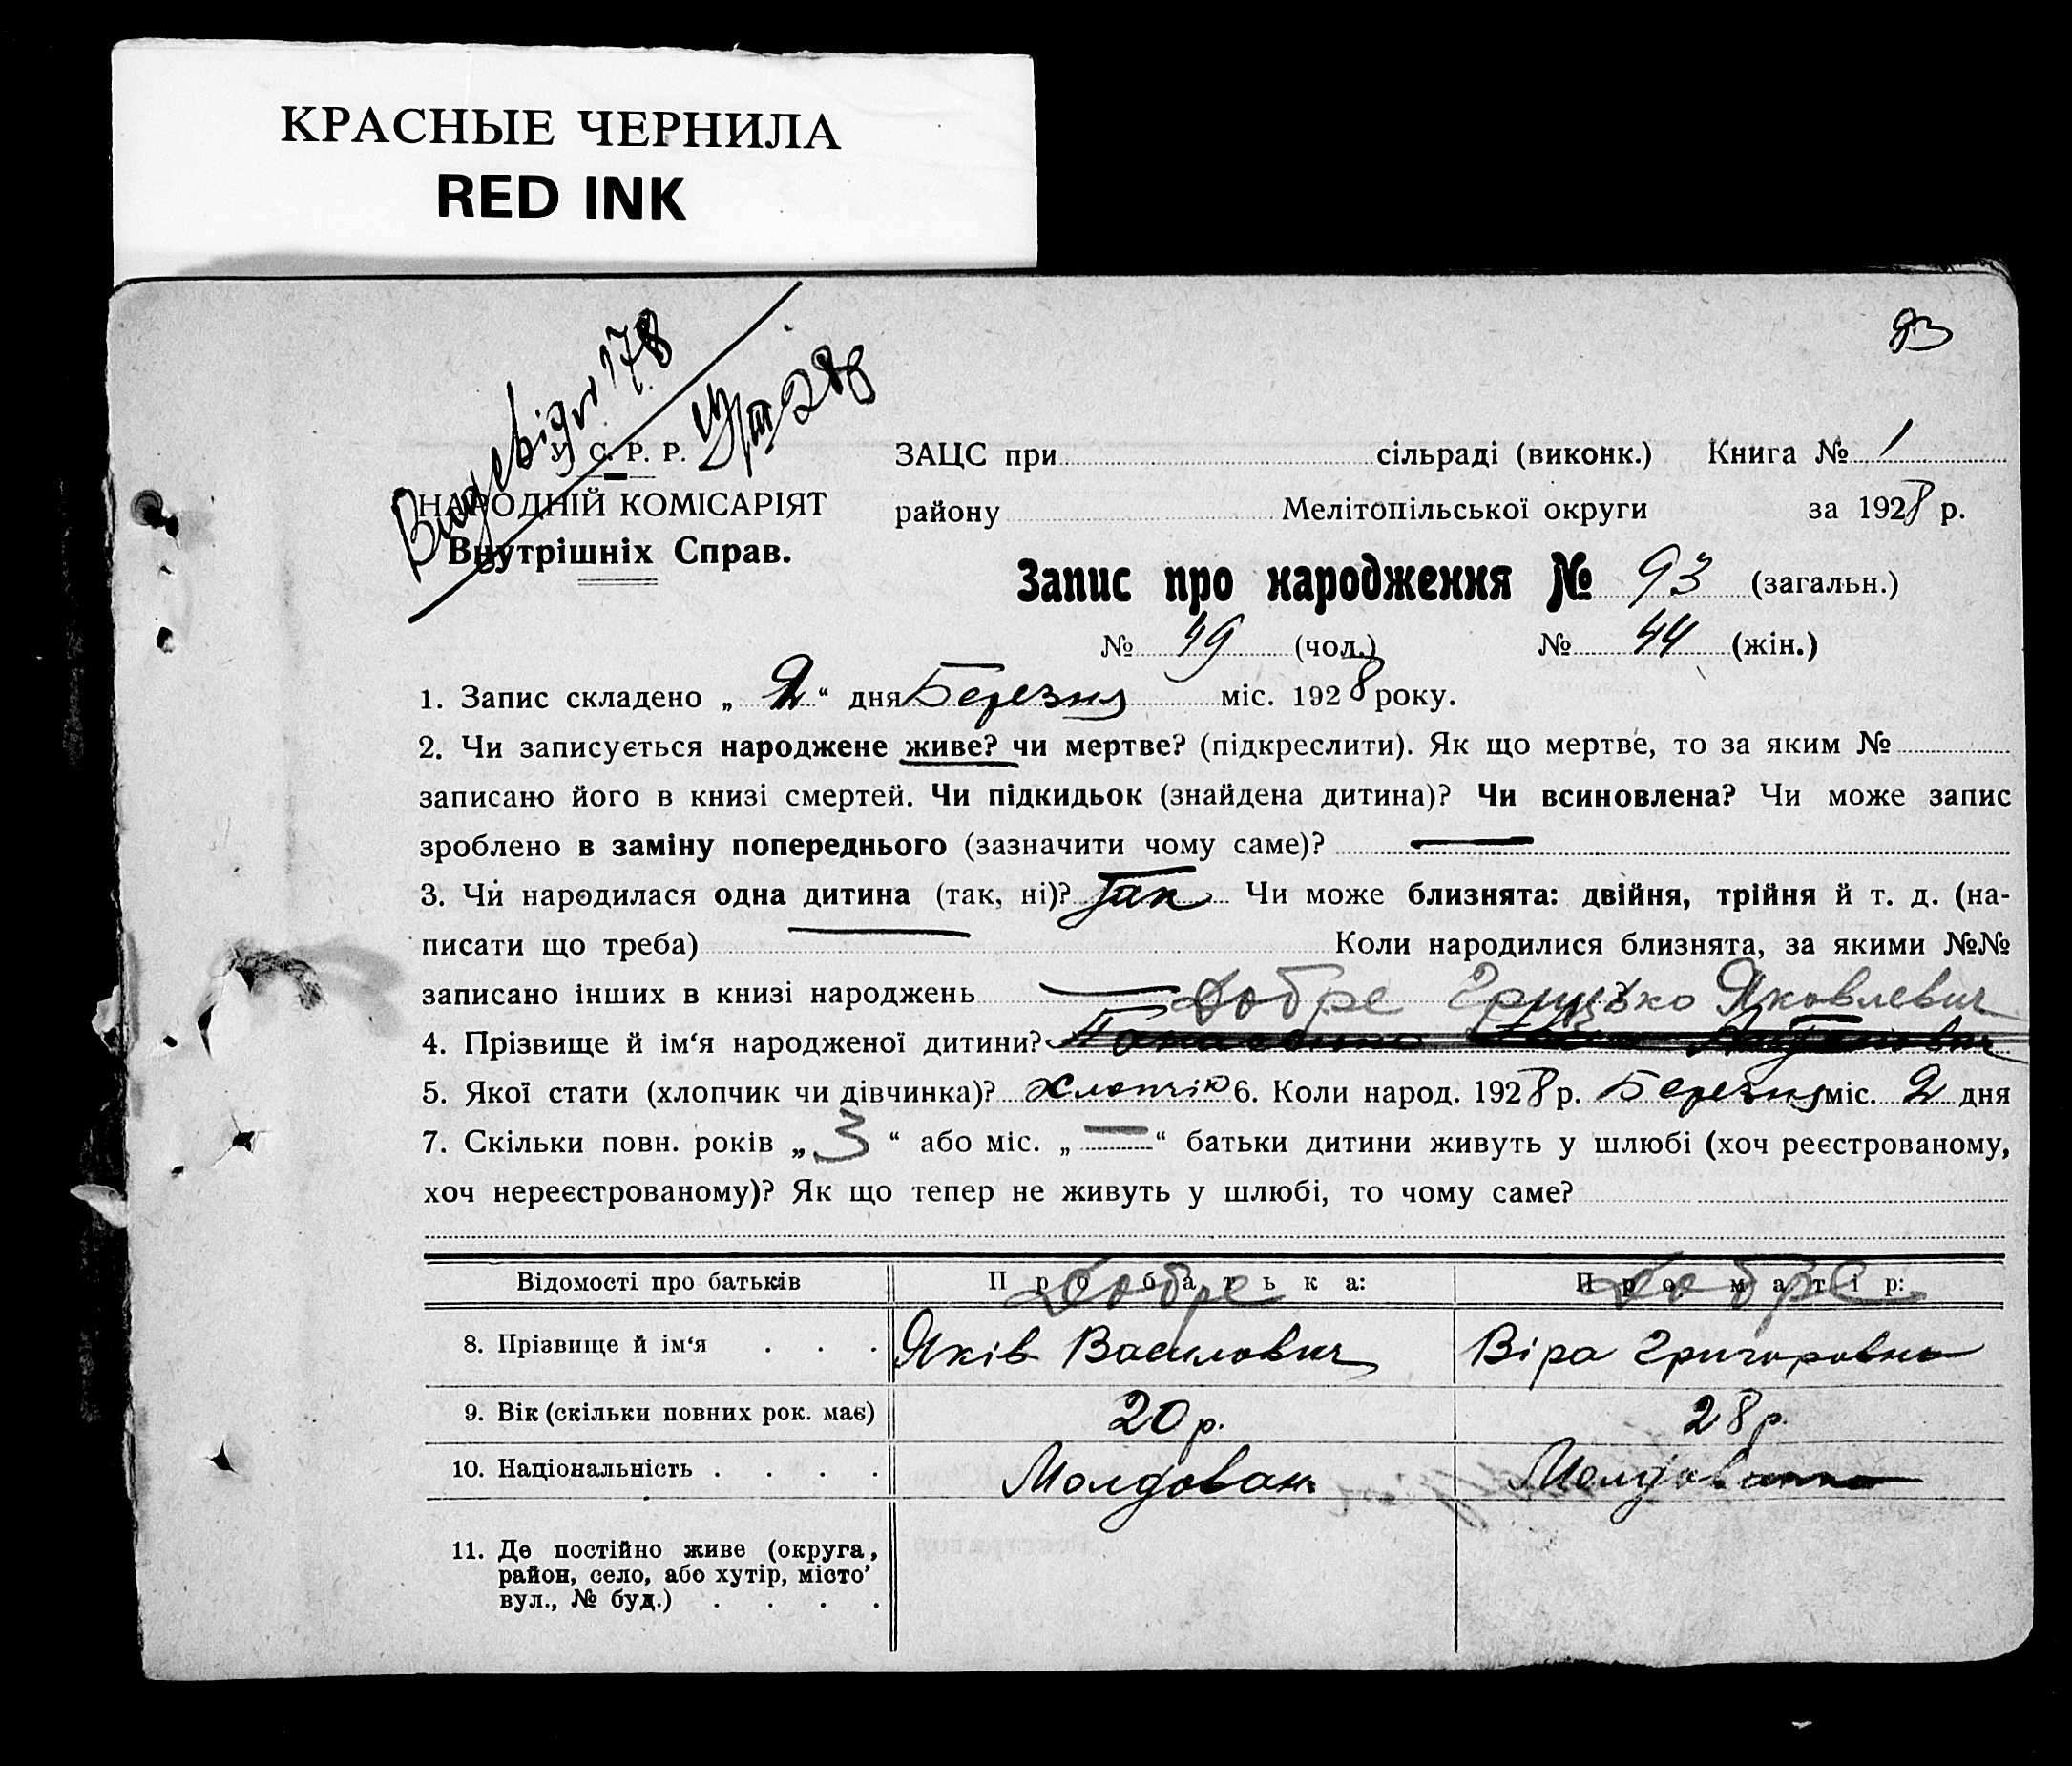 КРАСНЫЕ ЧЕРНИЛА
RED INK
93
178
У. С. Р. Р.
НАРОДНІЙ КОМІСАРІЯТ
Внутрішніх Справ.
ЗАЦС при сільраді (виконк.) Книга № 1
району Мелітопільської округи за 1928 р.
Запис про народження № 93 (загальн.)
№ 49 (чол.) № 44 (жін.)
1. Запис складено „ 2 “ дня Березня міс. 1928 року.
2. Чи записується народжене живе? чи мертве? (підкреслити). Як що мертве, то за яким №
записано його в книзі смертей. Чи підкидьок (знайдена дитина)? Чи всиновлена? Чи може запис
зроблено в заміну попереднього (зазначити чому саме)? —
3. Чи народилася одна дитина (так, ні)? Так Чи може близнята: двійня, трійня й т. д. (на-
писати що треба) Коли народилися близнята, за якими №№
записано інших в книзі народжень —
Добре Грицько Яковлевич
4. Прізвище й ім‘я народженої дитини?
5. Якої стати (хлопчик чи дівчинка)? Хлопчік 6. Коли народ. 1928 р. Березня міс. 2 дня
7. Скільки повн. років „ 3 “ або міс. „ — “ батьки дитини живуть у шлюбі (хоч реєстрованому,
хоч нереєстрованому)? Як що тепер не живуть у шлюбі, то чому саме?
Відомості про батьків Про батька: Про матір:
Добре Добре
8. Прізвище й ім‘я . . . Яків Василович Віра Григоровна
9. Вік (скільки повних рок. має) 20 р. 28 р.
10. Національність . . . . Молдован Молдованка
11. Де постійно живе (округа,
район, село, або хутір, місто’
вул., № буд.) . . . .